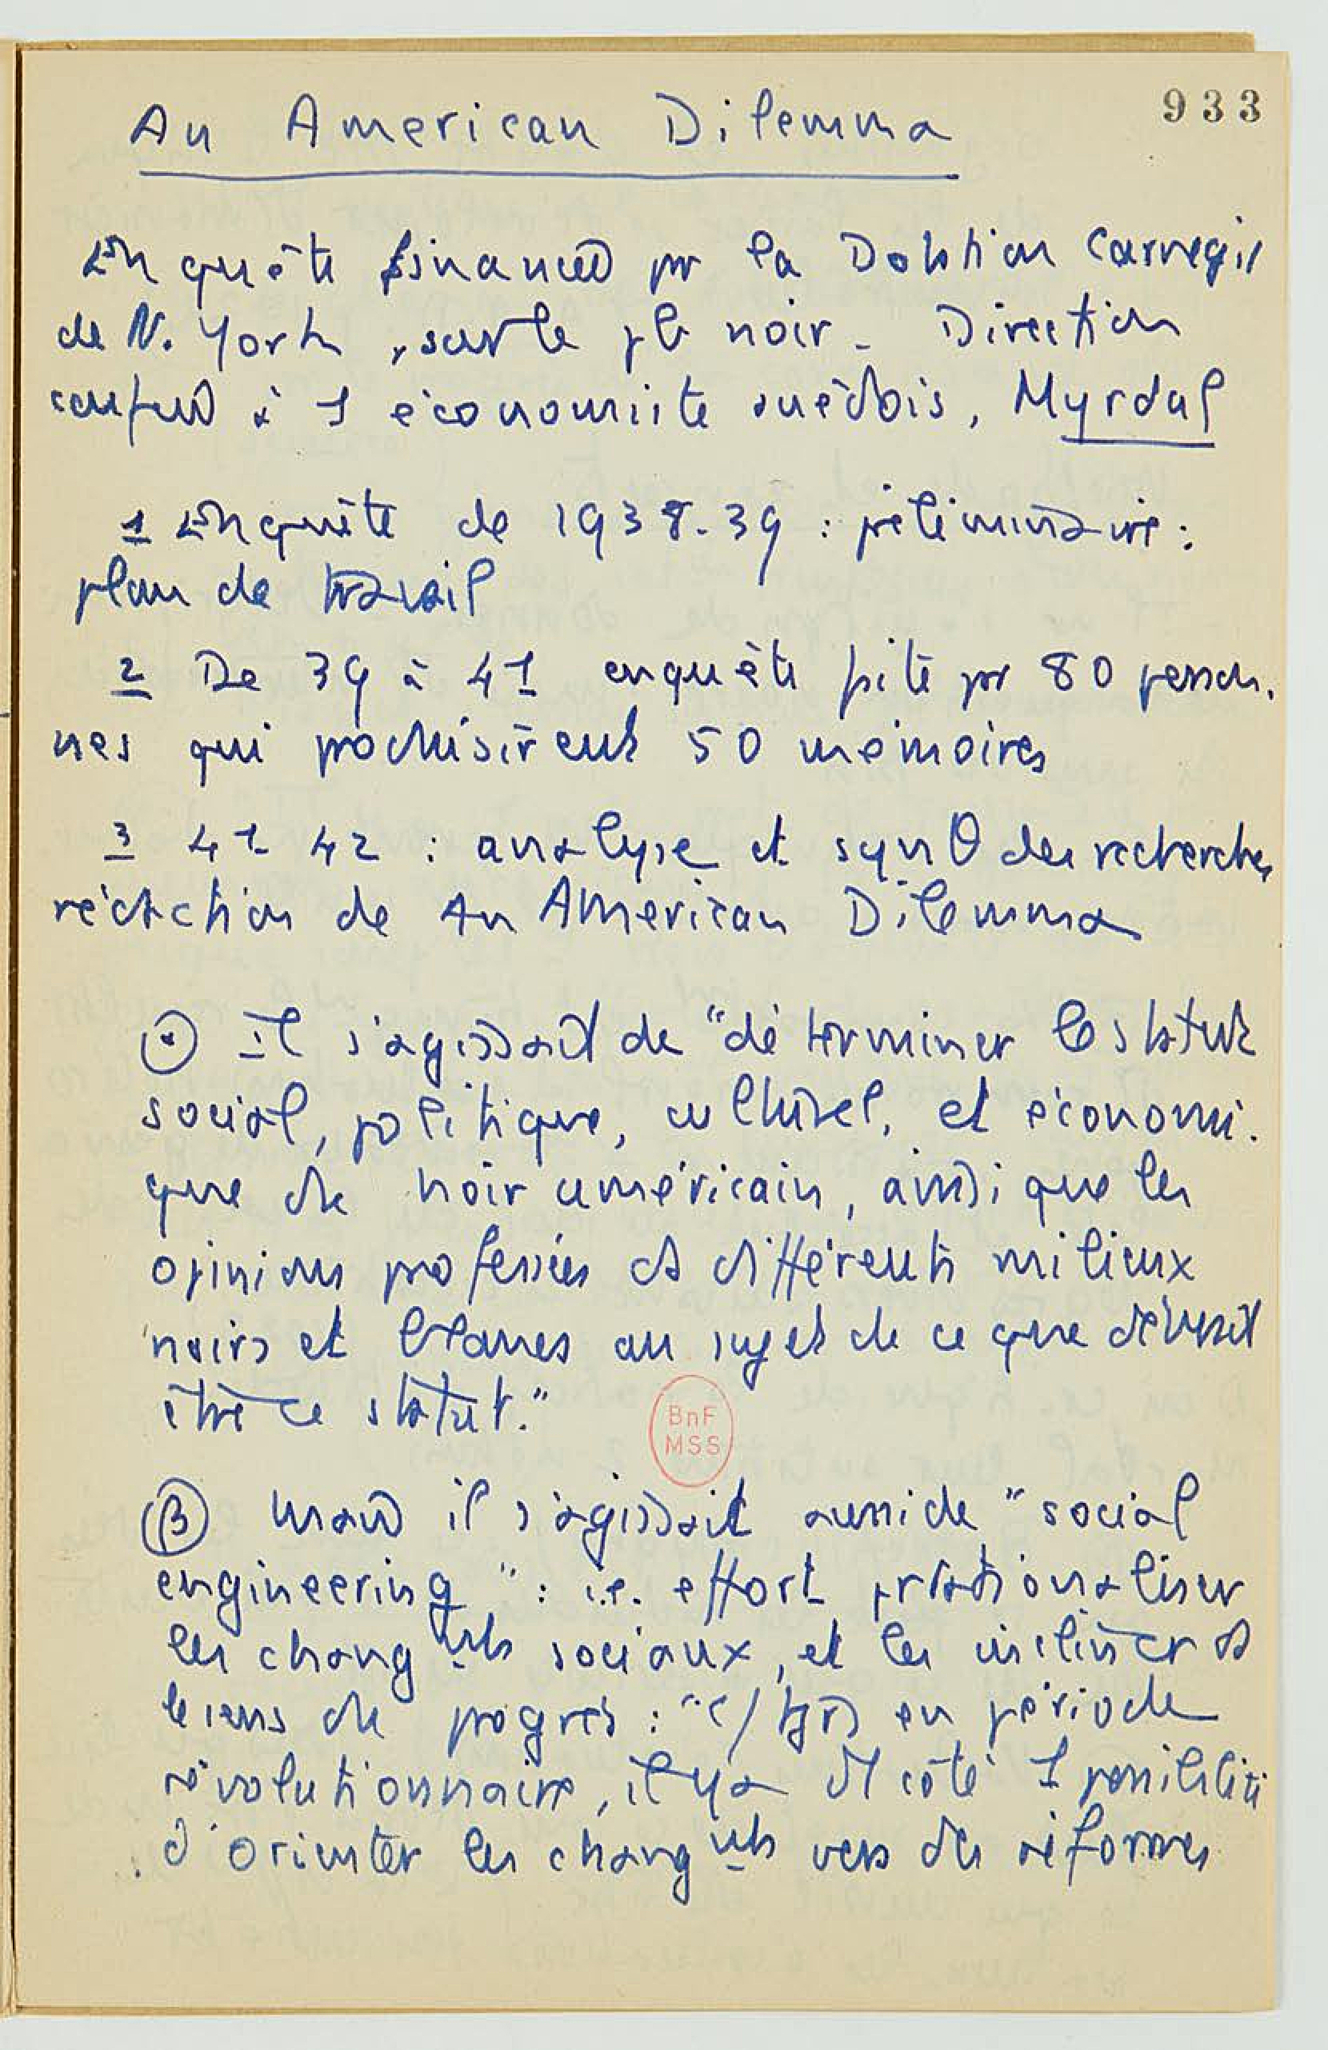 933
An American Dilemma
Enquête financée pr la Dotation Carnegie
de N. York, sur le pb noir. Direction
confiée à 1 économiste suédois, Myrdal
1 Enquête de 1938-39 : préliminaire :
plan de travail
2 De 39 à 41 enquête faite pr 80 person-
nes qui produisirent 50 mémoires
3 41 42 : analyse et synθ des recherches
rédaction de An American Dilemma
Il s'agissait de "déterminer le statut
social, politique, culturel, et économi-
que du noir américain, ainsi que les
opinions professées ds différents milieux
noirs et blancs au sujet de ce que devrait
être ce statut."
BnF
MSS
β mais il s'agissait aussi de "social
engineering" : i.e. effort pr rationaliser
les changmts sociaux, et les incliner ds
le sens du progrès : "c/ tjrs en période
révolutionnaire, il y a d'1 côté 1 possibilité
d'orienter les changmts vers des réformes